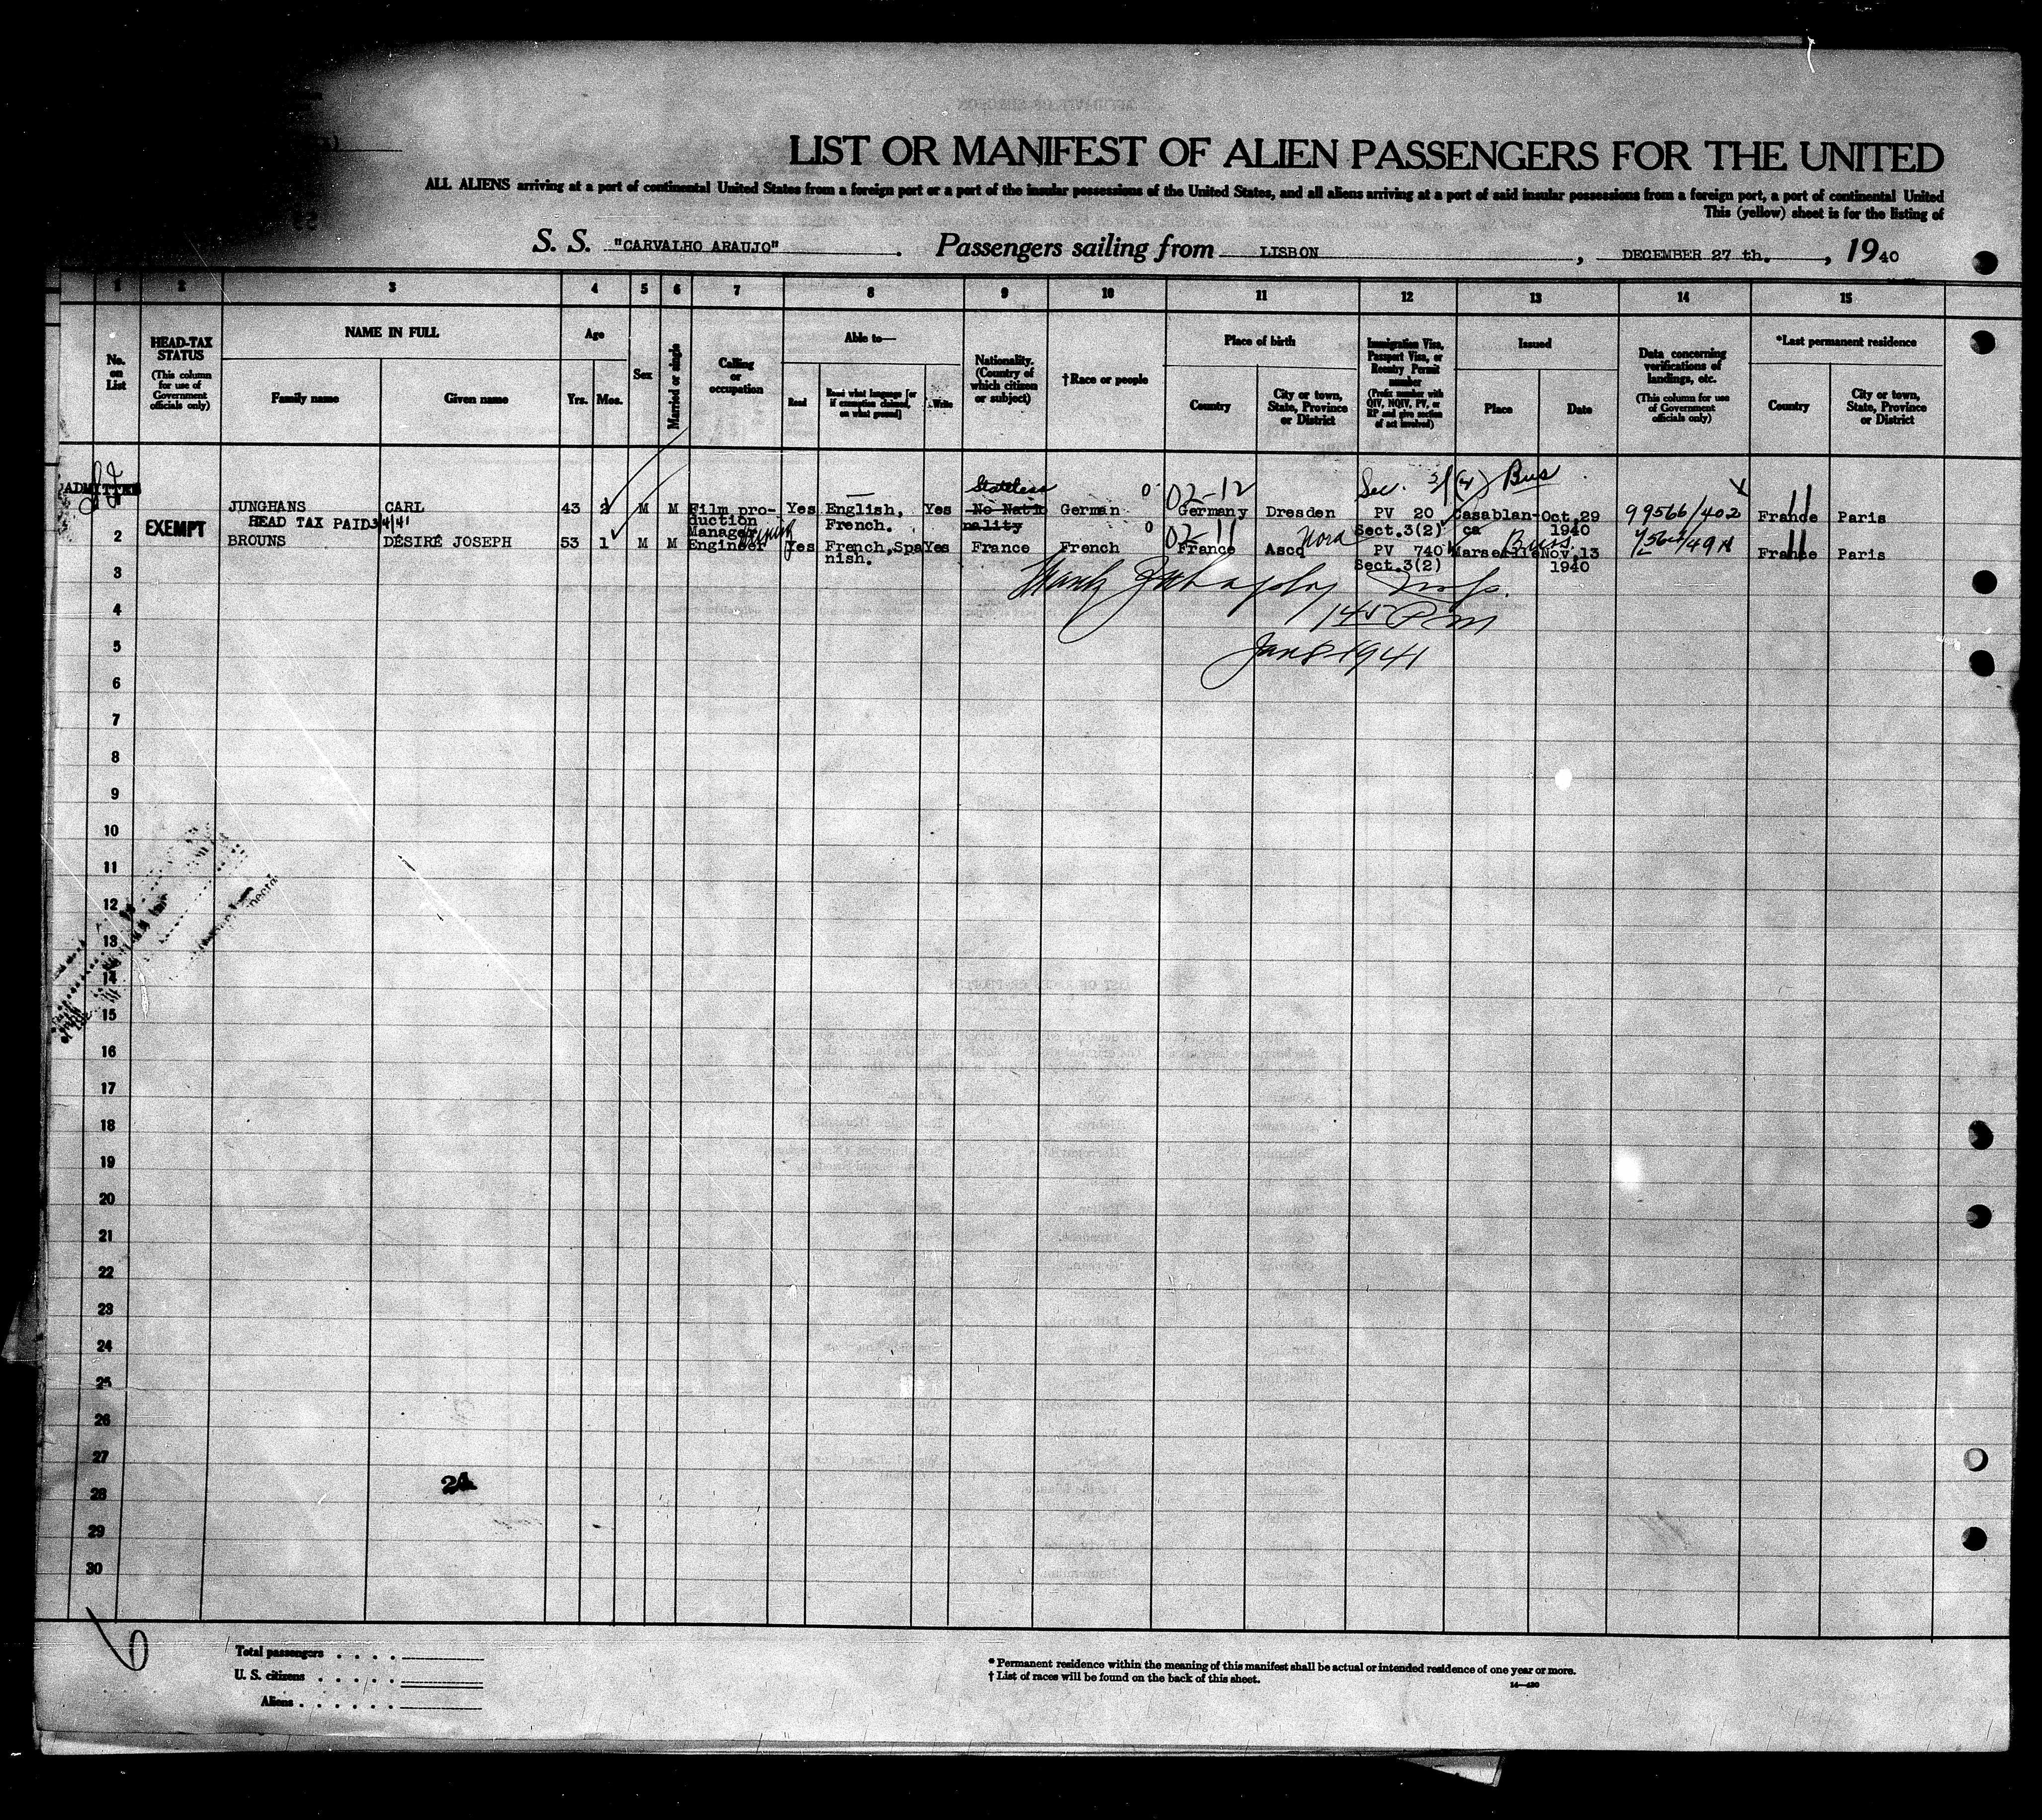 LIST OR MANIFEST OF ALIEN PASSENGERS FOR THE UNITED
ALL ALIENS arriving at a port of continental United States from a foreign port or a port of the insular possessions of the United States, and all aliens arriving at a port of said insular possessions from a foreign port, a port of continental United
This (yellow) sheet is for the listing of
S. S. "CARVALHO ARAUJO". Passengers sailing from LISBON, DECEMBER 27 th., 1940
1 2 3 4 5 6 7 8 9 10 11 12 13 14 15
No. on List
HEAD-TAX STATUS
(This column for use of Government officials only)
NAME IN FULL
Family name
Given name
Age
Yrs.
Mos.
Sex
Married or single
Calling or occupation
Able to—
Read
Read what language [or if exemption claimed, on what ground]
Write
Nationality. (Country of which citizen or subject)
†Race or people
Place of birth
Country
City or town, State, Province or District
Immigration Visa, Passport Visa, or Reentry Permit number
(Prefix number with QIV, NQIV, PV, or RP and give section of act involved)
Issued
Place
Date
Data concerning verifications of landings, etc.
(This column for use of Government officials only)
*Last permanent residence
Country
City or town, State, Province or District
ADMITTED
Stateless
02-12
Sec. 3(4) Bus
JUNGHANS CARL 43 2 M M Film production Manager Yes English, French. Yes No Nationality German 0 Germany Dresden PV 20 Sect.3(2) Casablanca Oct.29 1940 99566/402 France Paris
HEAD TAX PAID 3/4/41
2 EXEMPT BROUNS DÉSIRÉ JOSEPH 53 1 M M Engineer Yes French,Spanish. Yes France French 0 02-11 France Ascq Nord PV 740 Sect.3(2) Marseille Nov.13 1940 France Paris
3
4
145 Pm
5
Jan 8-1941
6
7
8
9
10
11
12
13
14
15
16
17
18
19
20
21
22
23
24
25
26
27
28
29
30
6
Total passengers
U. S. citizens
Aliens
* Permanent residence within the meaning of this manifest shall be actual or intended residence of one year or more.
† List of races will be found on the back of this sheet.
14—430